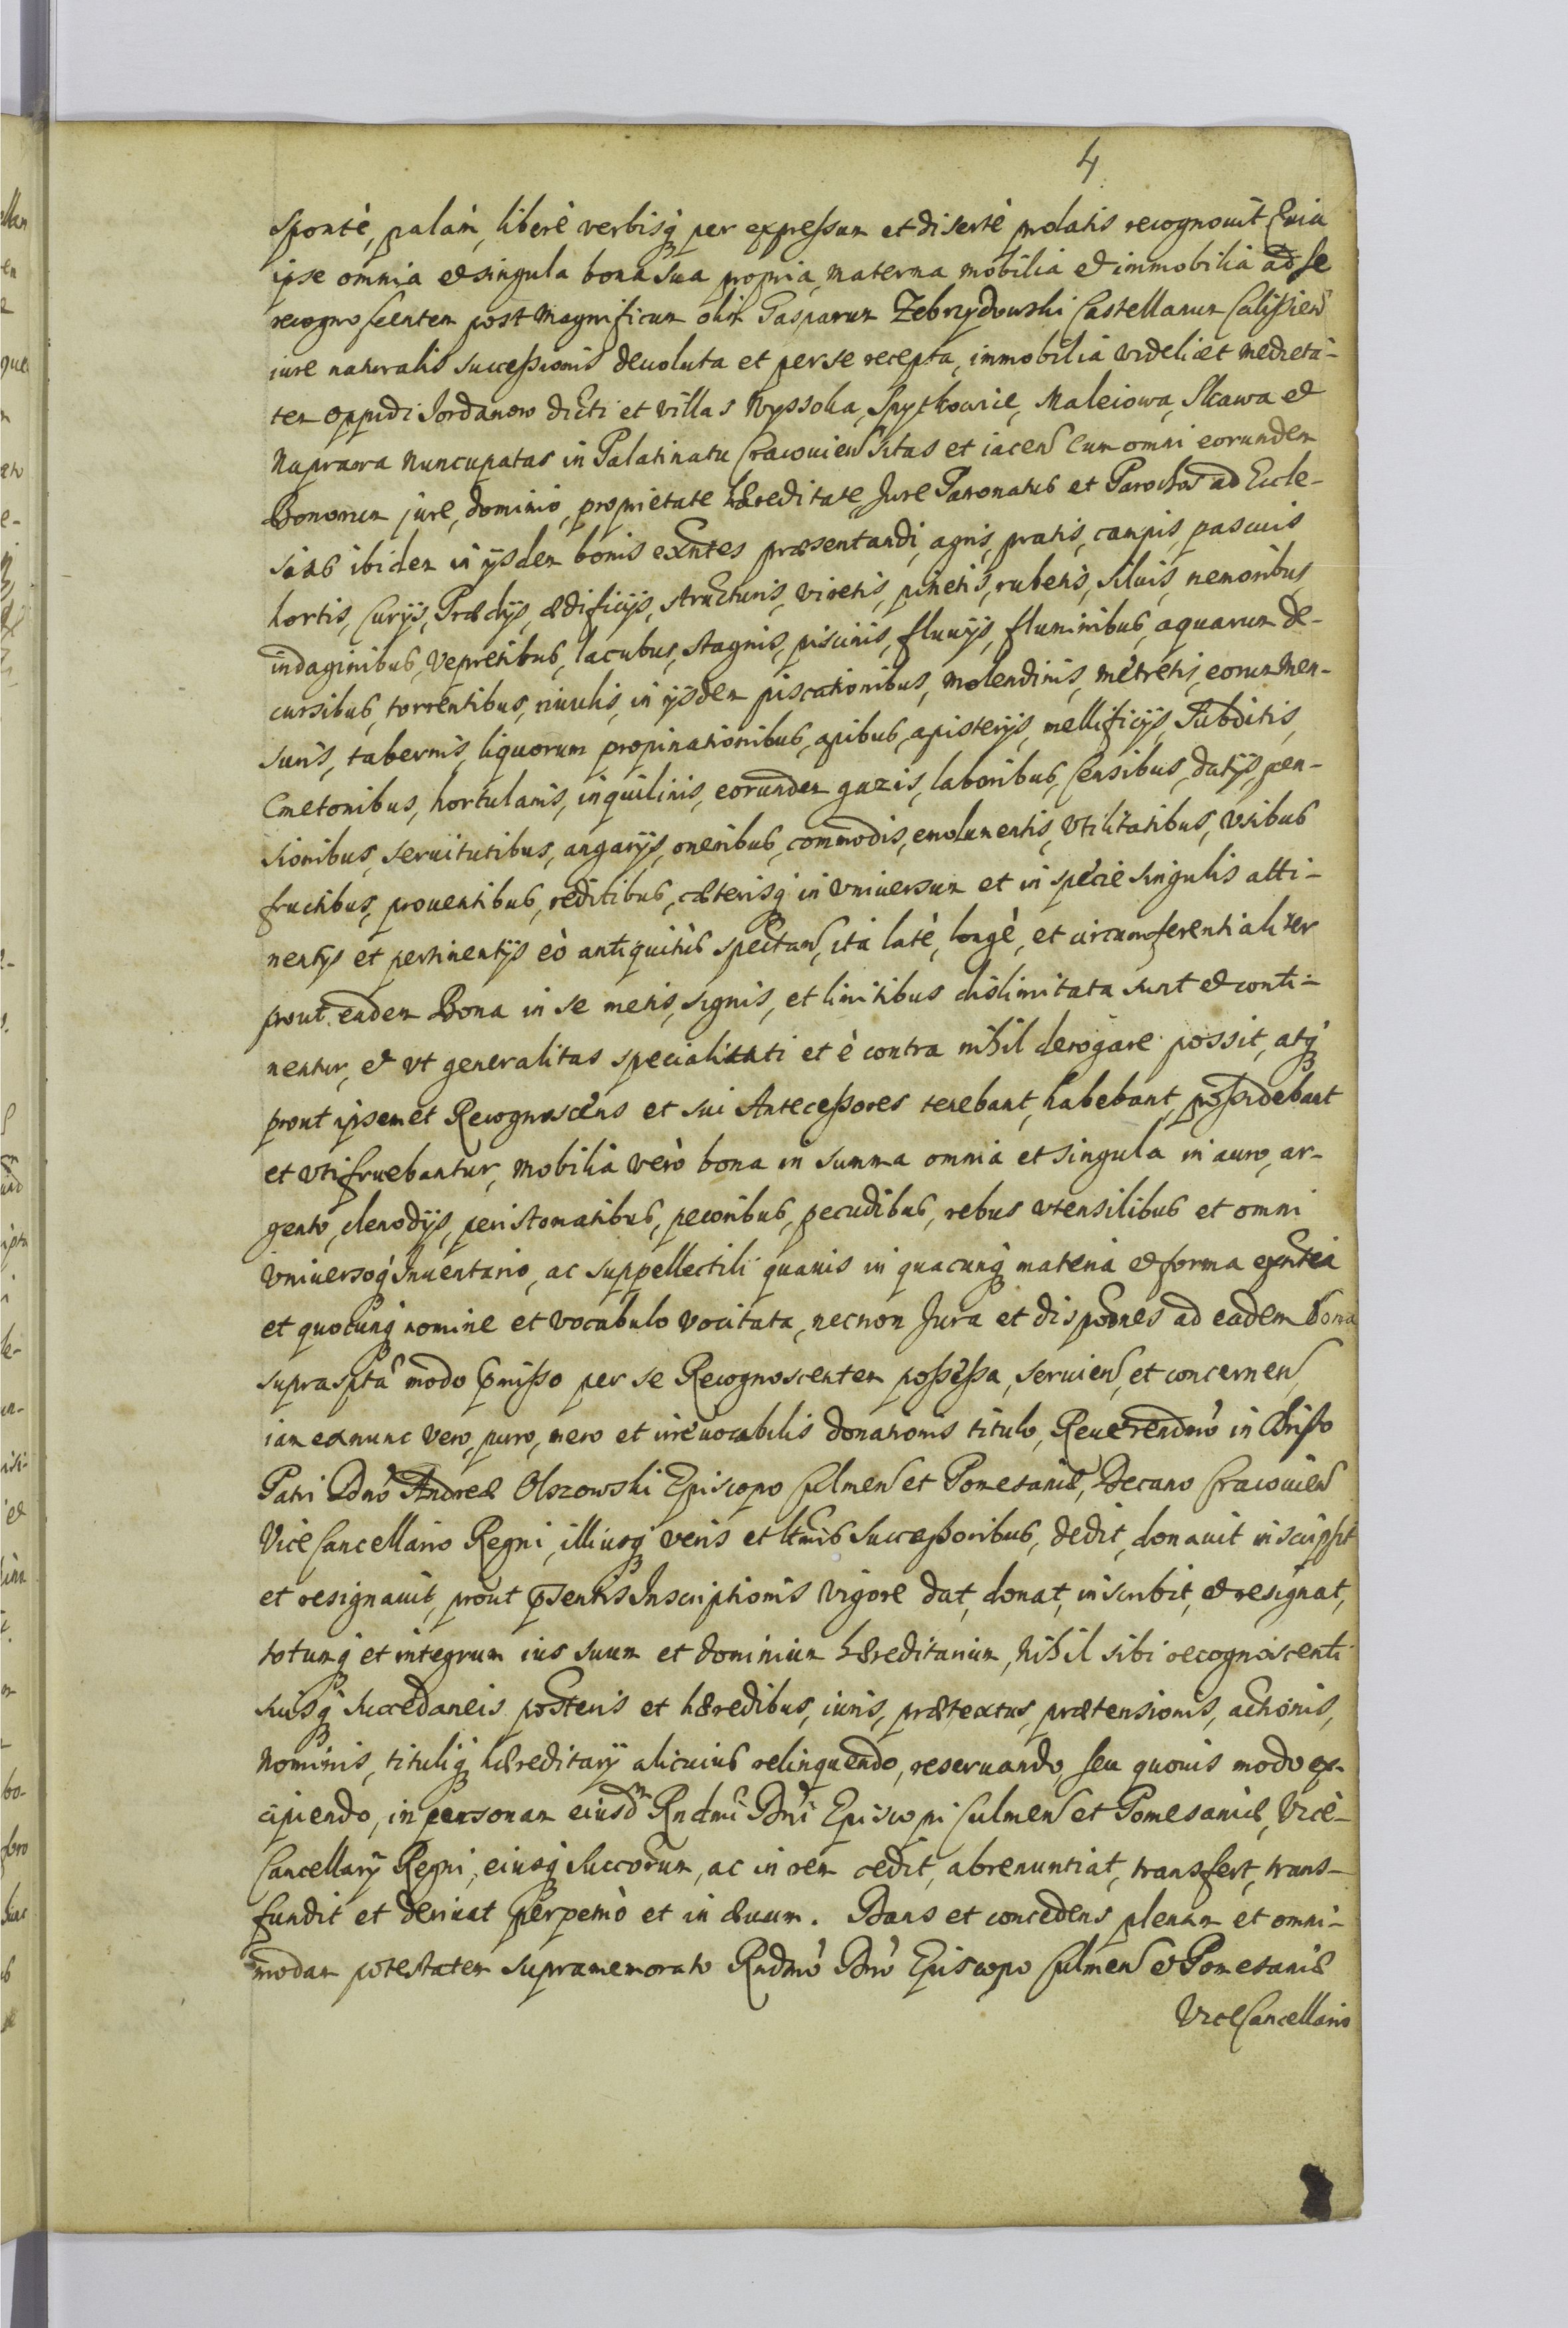 4
sponté, palám, liberè verbisq́ per expressum et disertè prolatis recognouit Quia
ipse omnia et singula bona sua propria materna mobilia et immobilia ad se
recognoscentem post Magnificum olim Gasparum Zebrzydowski Castellanum Calissień
iure naturalis successionis deuoluta et per se recepta, immobilia videlicet medieta-
tem oppidi Jordanow dicti et villas Wyssoka, Spytkowice, Maleiowa, Skawa et
Naprawa nuncupatas in Palatinatu Cracouień sitas et iaceń cum omni eorundem
Bonorum jure, dominio, proprietate hæreditate Jure Patronatus et Parochos ad Eccle-
sias ibidem in ijsdem bonis exñtes præsentandi, agris, pratis, campis, pascuis
hortis, Curijs, Prædijs, ædificijs, structuris, viretis, pinetis, rubetis, siluis, nemoribus,
indaginibus, vepretibus, lacubus, stagnis, piscinis, fluuijs, fluminibus, aquarum de-
cursibus, torrentibus, riuulis, in ijsdem piscationibus, molendinis, metretis, eorum men-
suris, tabernis, liquorum propinationibus, apibus, apisterijs, mellificijs, Subditis,
Cmetonibus, hortulanis, inquilinis, eorundem gazis, laboribus, Censibus, datijs, pen-
sionibus, seruitutibus, angarijs, oneribus, commodis, emolumentis, vtilitatibus, vsibus
fructibus, prouentibus, reditibus, cæterisq́ in vniuersum et in specie singulis atti-
nentijs et pertinentijs eò antiquitùs spectań, ita latè, longè, et circumferentialiter
prout eadem Bona in se metis, signis, et limitibus dislimitata sunt et conti-
nentur, et vt generalitas specialitati et è contra nihil derogare possit, atq́
prout ipsemet Recognoscens et sui Antecessores tenebant, habebant, possidebant
et vtifruebantur, mobilia verò bona in summa omnia et singula in auro, ar-
gento, clenodijs, peristomatibus, pecoribus, pecudibus, rebus vtensilibus et omni
vniuersoq́ Inuentario, ac suppellectili quauis in quacunq́ materia et forma exñtia
et quocunq́ nomine et vocabulo vocitata, necnon Jura et dispoñes ad eadem Bona
suprasptâ modo p̃misso per se Recognoscentem possessa, seruień, et concerneń,
iam ex nunc vero, puro, mero et irreuocabilis donationis titulo, Reuerendmô in Christo
Patri Dnô Andreæ Olszowski Episcopo Culmeń et Pomesaniæ, Decano Cracouień
Vice Cancellario Regni, illiusq́ veris et ltmis Successoribus, dedit, donauit inscripsit
et resignauit, prout p̃sentis Inscriptionis vigore dat, donat, inscribit, et resignat,
totumq́ et integrum ius suum et dominium hæreditarium, Nihil sibi recognoscenti
suisq́ succedaneis posteris et hæredibus, iuris, prætextus, prætensionis, actionis,
Nominis, tituliq́ hæreditarij alicuius relinquendo, reseruando, seu quouis modo ex-
cipiendo, in personam eiusdm Rndmî Dnî Episcopi Culmeń et Pomesaniæ, Vice-
Cancellarij Regni, eiusq́ Succorum, ac in rem cedit, abrenuntiat, transfert, trans-
fundit et deriuat perpetuò et in æuum. Dans et concedens plenam et omni-
modam potestatem supramemorato Rndmô Dnô Episcopo Culmeń et Pomesaniæ
ViceCancellario